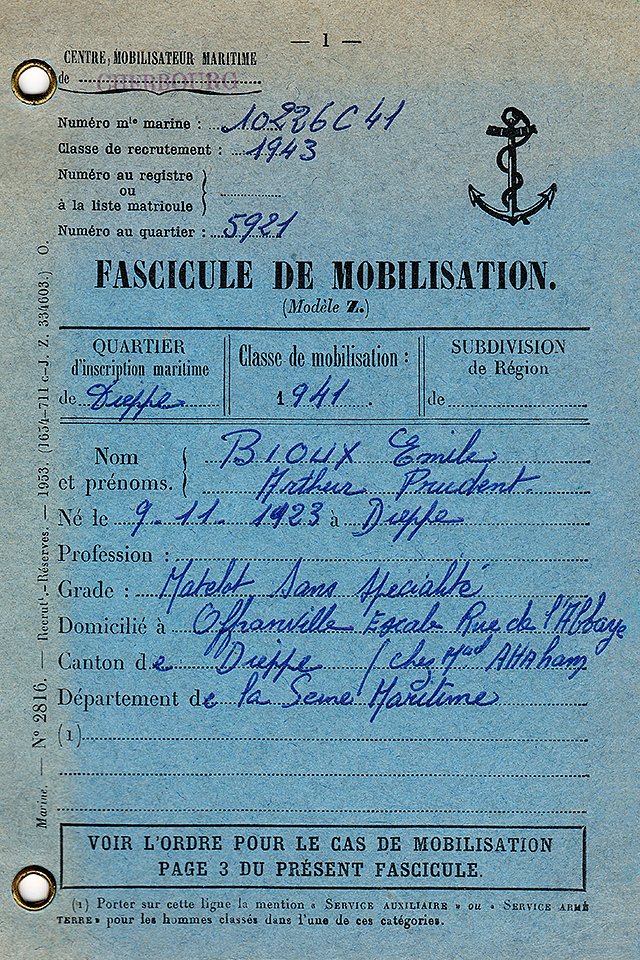 — 1 —
CENTRE MOBILISATEUR MARITIME
de CHERBOURG
Numéro mle marine : 10226C41
Classe de recrutement : 1943
Numéro au registre
ou
à la liste matricule
Numéro au quartier : 5921
FASCICULE DE MOBILISATION.
(Modèle Z.)
QUARTIER
d'inscription maritime
de Dieppe
Classe de mobilisation :
1941.
SUBDIVISION
de Région
de
Nom
et prénoms.
BIOUX Emile
Arthur Prudent
Né le 9.11.1923 à Dieppe
Profession :
Grade : Matelot Sans spécialité
Domicilié à Offranville Escale Rue de l'Abbaye
Canton de Dieppe (chez
Département de la Seine Maritime
(1)
VOIR L'ORDRE POUR LE CAS DE MOBILISATION
PAGE 3 DU PRÉSENT FASCICULE.
(1) Porter sur cette ligne la mention « SERVICE AUXILIAIRE » ou « SERVICE ARMÉ
TERRE » pour les hommes classés dans l'une de ces catégories.
Marine. — N° 2816. — Recrut.-Réserves. — 1953. (1654-711 c-J. Z. 334603.) O.